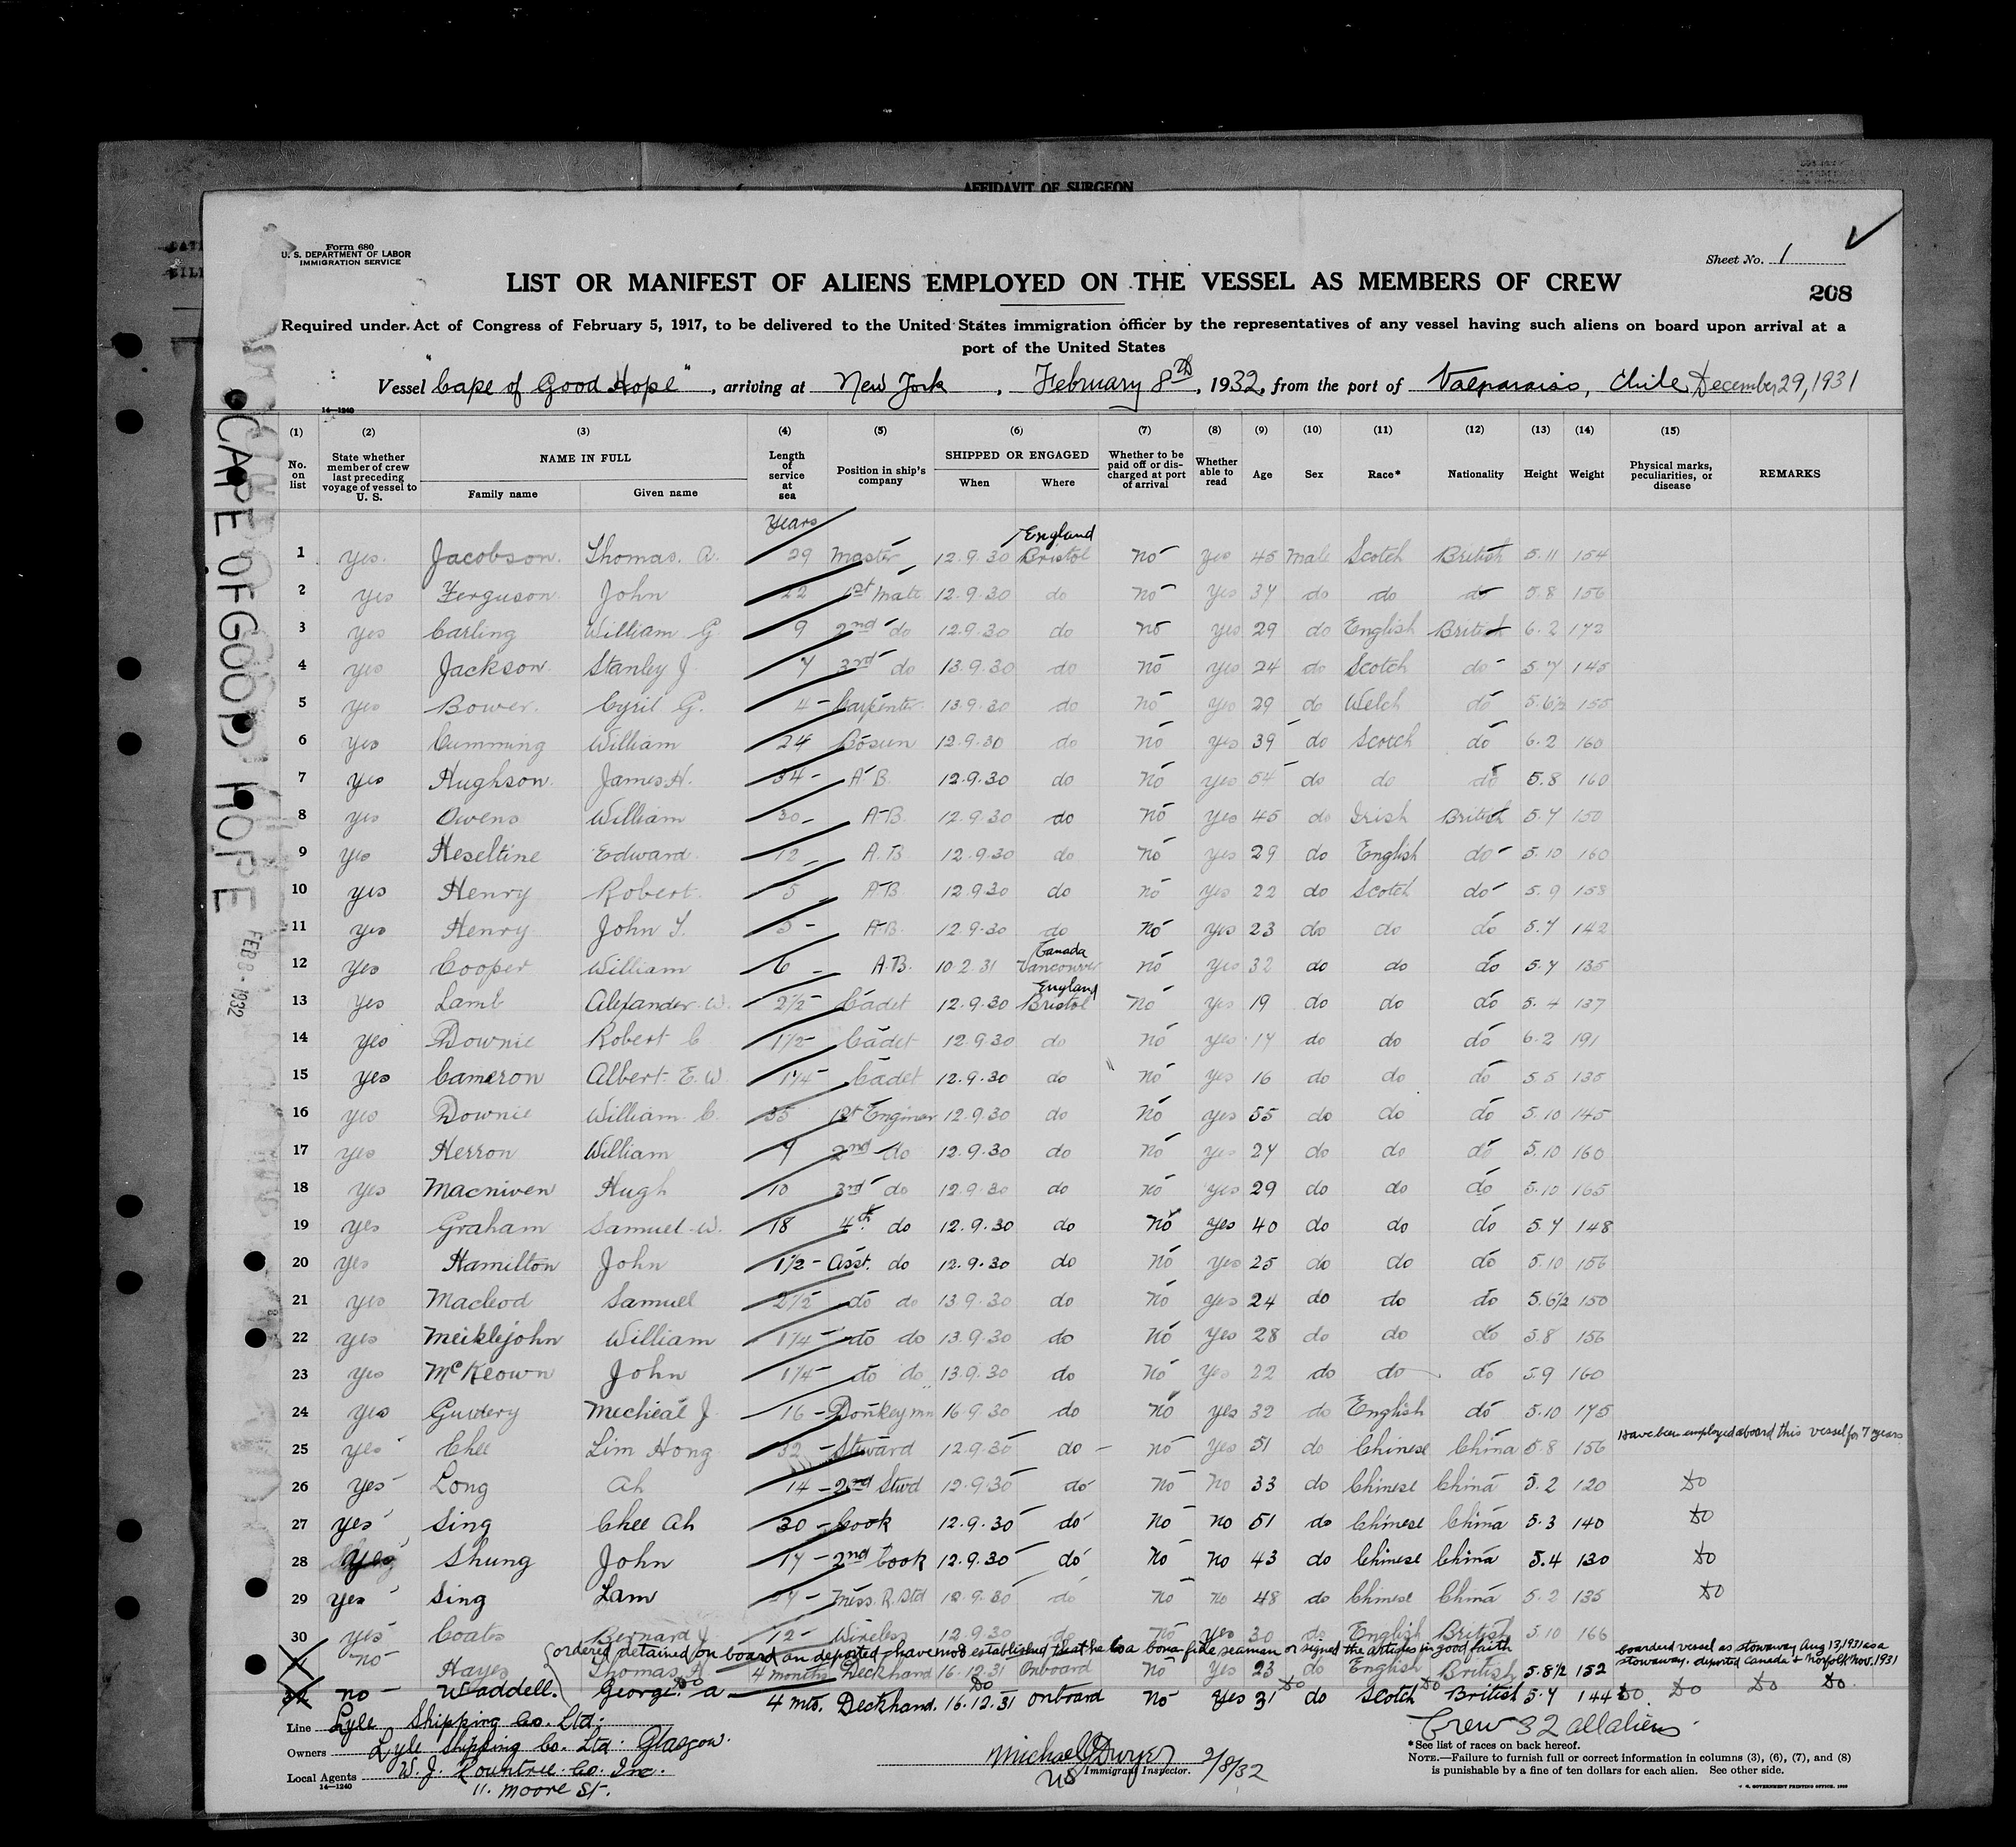 AFFIDAVIT OF SURGEON
Form 680
U. S. DEPARTMENT OF LABOR
IMMIGRATION SERVICE
Sheet No. 1
LIST OR MANIFEST OF ALIENS EMPLOYED ON THE VESSEL AS MEMBERS OF CREW
208
Required under Act of Congress of February 5, 1917, to be delivered to the United States immigration officer by the representatives of any vessel having such aliens on board upon arrival at a
port of the United States
Vessel "Cape of Good Hope", arriving at New York, February 8th, 1932, from the port of Valparaiso, Chile, December 29, 1931
14—1240
CAPE OF GOOD HOPE
FEB 8 - 1932
(1) (2) (3) (4) (5) (6) (7) (8) (9) (10) (11) (12) (13) (14) (15)
No. on list
State whether member of crew last preceding voyage of vessel to U. S.
NAME IN FULL
Family name Given name
Length of service at sea
Position in ship's company
SHIPPED OR ENGAGED
When Where
Whether to be paid off or discharged at port of arrival
Whether able to read
Age Sex Race* Nationality Height Weight
Physical marks, peculiarities, or disease
REMARKS
Years
England
1 Yes. Jacobson. Thomas. A. 29 Master 12.9.30 Bristol No Yes 45 Male Scotch British 5.11 154
2 yes Ferguson John 22 1st Mate 12.9.30 do No Yes 37 do do do 5.8 156
3 yes Carling William G. 9 2nd do 12.9.30 do No yes 29 do English British 6.2 172
4 yes Jackson Stanley J. 7 3rd do 13.9.30 do No yes 24 do Scotch do 5.7 145
5 yes Bower. Cyril G. 4 Carpenter 13.9.30 do No yes 29 do Welch do 5.6½ 155
6 yes Cumming William 24 Bosun 12.9.30 do No yes 39 do Scotch do 6.2 160
7 yes Hughson. James H. 34 A B. 12.9.30 do No yes 54 do do do 5.8 160
8 yes Owens William 30 A-B. 12.9.30 do No yes 45 do Irish British 5.7 150
9 yes Heseltine Edward 12 A.B 12.9.30 do No yes 29 do English do 5.10 160
10 yes Henry Robert. 5 A-B 12.9.30 do No yes 22 do Scotch do 5.9 158
11 yes Henry John T. 5 A-B. 12.9.30 do No yes 23 do do do 5.7 142
Canada
12 yes Cooper William 6 A.B. 10.2.31 Vancouver No yes 32 do do do 5.7 135
England
13 yes Lamb Alexander W. 2½ Cadet 12.9.30 Bristol No yes 19 do do do 5.4 137
14 yes Downie Robert C 1½ Cadet 12.9.30 do No yes 17 do do do 6.2 191
15 yes Cameron Albert E. W. 1¼ Cadet 12.9.30 do No yes 16 do do do 5.5 135
16 yes Downie William C. 35 1st Enginer 12.9.30 do No yes 55 do do do 5.10 145
17 yes Herron William 7 2nd do 12.9.30 do No yes 27 do do do 5.10 160
18 yes Macniven Hugh 10 3rd do 12.9.30 do No yes 29 do do do 5.10 165
19 yes Graham Samuel W. 18 4th do 12.9.30 do No yes 40 do do do 5.7 148
20 yes Hamilton John 1½ Asst. do 12.9.30 do No yes 25 do do do 5.10 156
21 yes Macleod Samuel 2½ do do 13.9.30 do No yes 24 do do do 5.6½ 150
22 yes Meiklejohn William 1¼ do do 13.9.30 do No yes 28 do do do 5.8 156
23 yes McKeown John 1¼ do do 13.9.30 do No yes 22 do do do 5.9 160
24 yes Micheal J. 16 Donkeymn 16.9.30 do No yes 32 do English do 5.10 175
25 yes Chee Lim Hong 32 Steward 12.9.30 do No yes 51 do Chinese China 5.8 156 Have been employed aboard this vessel for 7 years
26 yes Long Ah 14 2nd Stwd 12.9.30 do No No 33 do Chinese China 5.2 120 Do
27 yes Sing Chee Ah 30 Cook 12.9.30 do No no 51 do Chinese China 5.3 140 Do
28 yes Shung John 17 2nd Cook 12.9.30 do No no 43 do Chinese China 5.4 130 Do
29 yes Sing Lam 27 Mess. R. Std 12.9.30 do No no 48 do Chinese China 5.2 135 Do
30 yes Coates Bernard J. 12 Wireless 12.9.30 do No yes 30 do English British 5.10 166
ordered detained on board an deported, have not established that he is a bona-fide seaman or signed the articles in good faith
boarded vessel as stowaway Aug 13, 1931 as a
stowaway. deported Canada & Norfolk Nov. 1931
no Hayes Thomas A 4 months Deckhand 16.12.31 Onboard No Yes 23 do English British 5.8½ 152
Do Do Do Do
32 no Waddell. George. A 4 mts. Deckhand. 16.12.31 onboard No Yes 31 do Scotch British 5.7 144 Do Do Do Do
Line Lyle Shipping Co. Ltd.
Owners Lyle Shipping Co. Ltd. Glasgow.
Local Agents W. J. Rountree Co. Inc.
11. Moore St.
14—1240
Michael Dwyer 2/8/32
US Immigrant Inspector.
Crew 32 all aliens
*See list of races on back hereof.
NOTE.—Failure to furnish full or correct information in columns (3), (6), (7), and (8)
is punishable by a fine of ten dollars for each alien. See other side.
U. S. GOVERNMENT PRINTING OFFICE. 1930